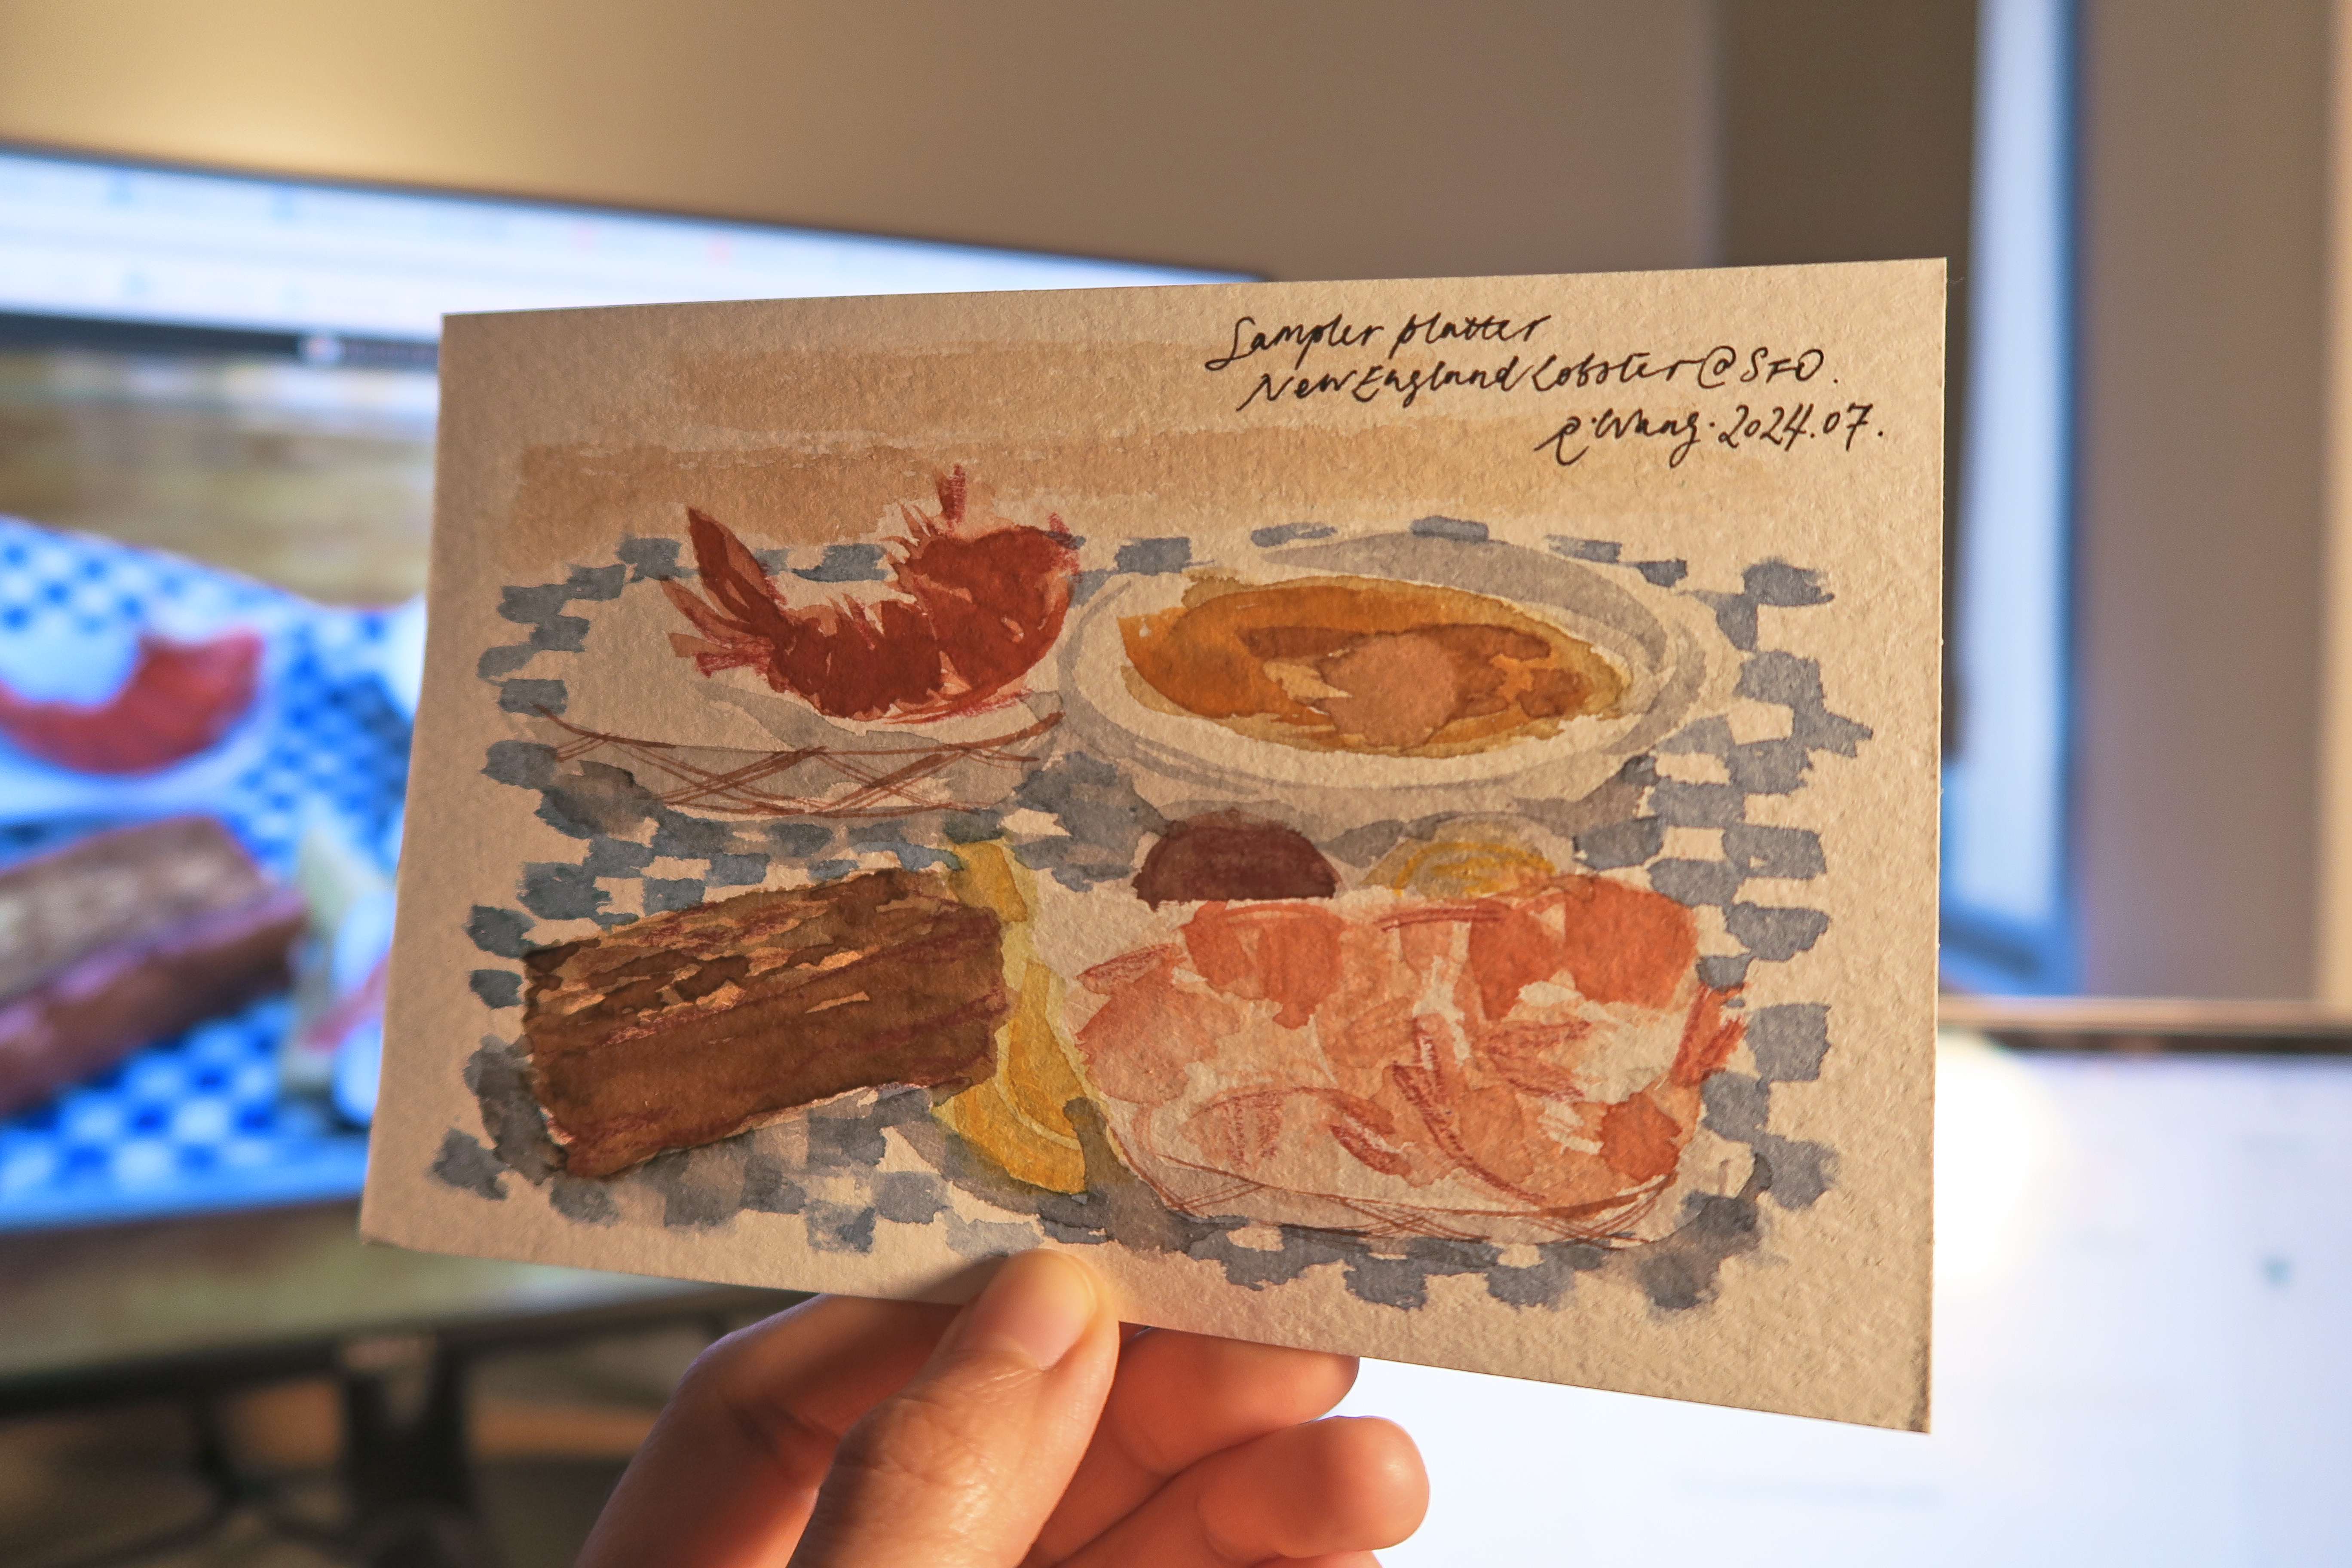 Sampler platter
New England Lobster @ SFO.
R. Wang. 2024.07.